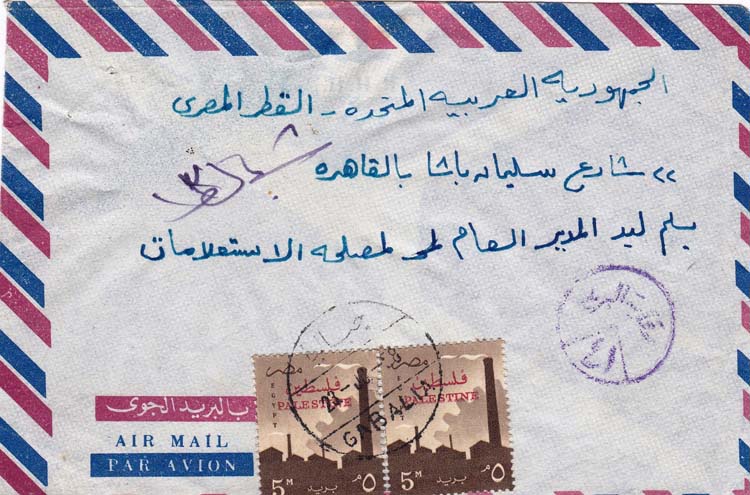 الجمهورية العربية المتحدة - القطر المصرى
٢٢ شارع سليمان باشا بالقاهرة
يسلم ليد المدير العام لمصلحة الاستعلامات
بالبريد الجوى
AIR MAIL
PAR AVION
GABALIA
23
مصر
فلسطين
EGYPT
PALESTINE
5M بريد ٥م
مصر
فلسطين
PALESTINE
5M بريد ٥م